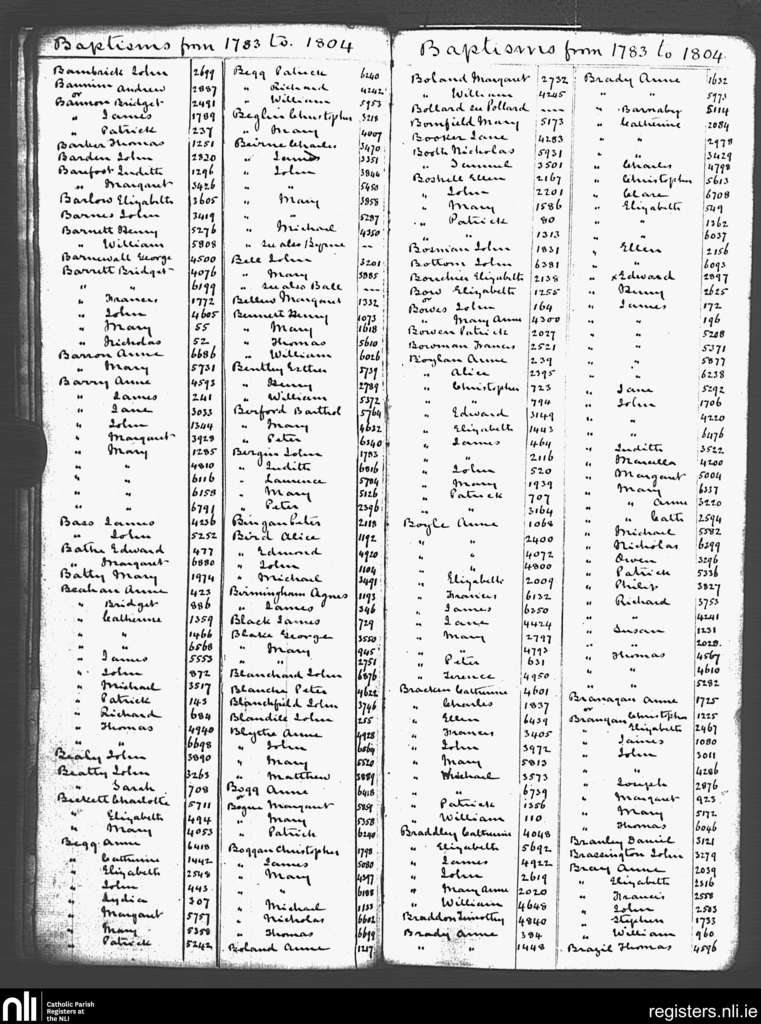 Baptisms from 1783 to 1804
Bambrick John 2699
Bannin Andrew 2887
or
Bannon Bridget 2491
" James 1789
" Patrick 237
Barker Thomas 1251
Barden John 2820
Barefoot Judith 1296
" Margaret 3426
Barlow Elizabeth 3605
Barnes John 3419
Barnett Henry 5276
" William 5808
Barnewall George 4500
Barrett Bridget 4076
" " 6199
" Frances 1772
" John 4605
" Mary 55
" Nicholas 52
Barron Anne 6686
" Mary 5731
Barry Anne 4593
" James 241
" Jane 3033
" John 1344
" Margaret 3928
" Mary 1285
" " 4810
" " 6116
" " 6158
" " 6791
Bass James 4236
" John 5252
Bathe Edward 477
" Margaret 6880
Batty Mary 1974
Beahan Anne 423
" Bridget 886
" Catherine 1359
" " 1466
" " 6568
" James 5553
" John 872
" Michael 3517
" Patrick 143
" Richard 684
" Thomas 4940
" " 6698
Bealy John 3890
Beatty John 3263
" Sarah 708
Beckett Charlotte 5711
" Elizabeth 494
" Mary 4053
Begg Anne 6418
" Catherine 1442
" Elizabeth 2548
" John 443
" Lydia 307
" Margaret 5757
" Mary 5358
" Patrick 5242
Begg Patrick 6240
" Richard 4242
" William 5953
Beglin Christopher 3218
" Mary 4007
Beirne Charles 3470
" James 3351
" John 3844
" " 5450
" Mary 3858
" " 5287
" Michael 4350
" See also Byrne —
Bell John 3201
" Mary 3885
" See also Ball —
Bellew Margaret 1332
Bennett Henry 1073
" Mary 1618
" Thomas 5610
" William 6026
Bentley Esther 5739
" Henry 2789
" William 5372
Berford Barthol 5764
" Mary 4632
" Peter 6340
Bergin John 1783
" Judith 6816
" Laurence 5784
" Mary 5126
" Peter 2396
Bingan Peter 2118
Bird Alice 1192
" Edmond 4920
" John 1104
" Michael 3491
Birmingham Agnes 1193
" James 346
Black James 729
Blake George 3550
" Mary 945
" " 2751
Blanchard John 6876
Blanche Peter 4622
Blanchfield John 3746
Blandile John 255
Blythe Anne 4928
" John 6564
" Mary 5520
" Matthew 3889
Bogg Anne 6418
Bogue Margaret 5859
" Mary 5358
" Patrick 6240
Boggan Christopher 1798
" James 5080
" Mary 4397
" " 6188
" Michael 1133
" Nicholas 6602
" Thomas 6699
Boland Anne 1217
Baptisms from 1783 to 1804
Boland Margaret 2732
" William 4245
Bollard see Pollard ----
Bomfield Mary 5173
Booker Jane 4283
Booth Nicholas 5931
" Samuel 3501
Boshell Ellen 2167
" John 2201
" Mary 1586
" Patrick 80
" " 1313
Bosman John 1831
Bottom John 6381
Bourchier Elizabeth 2138
Bow Elizabeth 1255
or
Bowes John 164
" Mary Anne 4300
Bowen Patrick 2027
Bowman Frances 2521
Boylan Anne 239
" Alice 2395
" Christopher 723
" " 794
" Edward 3149
" Elizabeth 1443
" James 464
" " 2116
" John 520
" Mary 1939
" Patrick 707
" " 3164
Boyle Anne 1068
" " 2400
" " 4072
" " 4800
" Elizabeth 2009
" Frances 6132
" James 6350
" Jane 4424
" Mary 2797
" " 4793
" Peter 631
" Terence 4950
Bracken Catherine 4601
" Charles 1837
" Ellen 6439
" Frances 3405
" John 3972
" Mary 5813
" Michael 3573
" " 6739
" Patrick 1356
" William 110
Braddley Catherine 4048
" Elizabeth 5692
" James 4922
" John 2619
" Mary Anne 2020
" William 4648
Braddon Timothy 4840
Brady Anne 384
" " 1448
Brady Anne 1632
" " 5973
" Barnaby 5114
" Catherine 2084
" " 2978
" " 3429
" Charles 4798
" Christopher 5613
" Clare 6708
" Elizabeth 549
" " 1362
" " 6037
" Ellen 2156
" " 6093
" xEdward 2897
" Henry 2625
" James 172
" " 196
" " 5208
" " 5371
" " 5877
" " 6238
" Jane 5292
" John 1706
" " 4220
" " 6476
" Judith 3522
" Marcella 4200
" Margaret 5004
" Mary 6337
" " Anne 3220
" " Cath 2594
" Michael 5582
" Nicholas 6399
" Owen 3296
" Patrick 5336
" Philip 3827
" Richard 3753
" " 4241
" Susan 1231
" " 2028
" Thomas 4567
" " 4610
" " 5282
Branagan Anne 1725
or
Brangan Christopher 1225
" Elizabeth 2467
" James 1080
" John 3011
" " 4286
" Joseph 2876
" Margaret 923
" Mary 5172
" Thomas 6046
Branley Daniel 3121
Brassington John 3279
Bray Anne 2039
" Elizabeth 2316
" Francis 2558
" John 2503
" Stephen 1733
" William 960
Brazil Thomas 4596
nli
Catholic Parish
Registers at
the NLI
registers.nli.ie